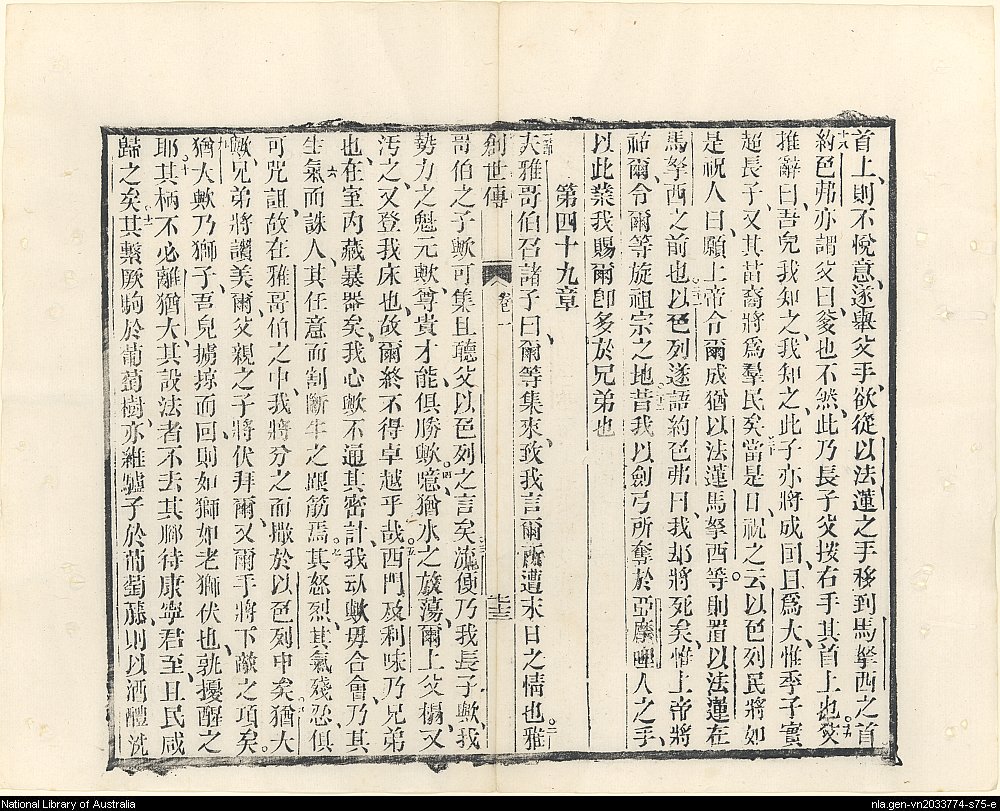 首上則不悅意遂舉父手欲從以法蓮之手移到馬拏西之首
約色弗亦謂父曰爹也不然此乃長子父按右手其首上也父
推辭曰吾兒我知之我知之此子亦將成囯且為大惟季子實
超長子又其苗裔將為羣民矣當是日祝之云以色列民將如
是祝人曰願上帝令爾成猶以法蓮馬拏西等則置以法蓮在
馬拏西之前也以色列遂語約色弗曰我却將死矣惟上帝將
祐爾令爾等旋祖宗之地昔我以劍弓所奪於亞摩哩人之手
以此業我賜爾卽多於兄弟也
第四十九章
夫雅哥伯召諸子曰爾等集來致我言爾所遭末日之情也雅
創世傳 卷一
哥伯之子歟可集且聽父以色列之言矣流便乃我長子歟我
勢力之魁元歟尊貴才能俱勝歟噫猶水之蕩爾上父榻又
汚之又登我床也故爾終不得卓越乎哉西門及利味乃兄弟
也在室內藏暴器矣我心歟不通其密計我歟毋合會乃其
生氣而誅人其任意而割斷牛之跟筋焉其怒烈其氣殘忍俱
可咒詛故在雅哥伯之中我將分之而撒於以色列中矣猶大
歟兄弟將讚美爾父親之子將伏拜爾又爾手將下敵之項矣
猶大歟乃獅子吾兒擄掠而回則如獅如老獅伏也孰擾醒之
耶其柄不必離猶大其設法者不去其腳待康寧君至且民咸
歸之矣其繫厥駒於葡萄樹亦維驢子於葡萄藤則以酒醴洗